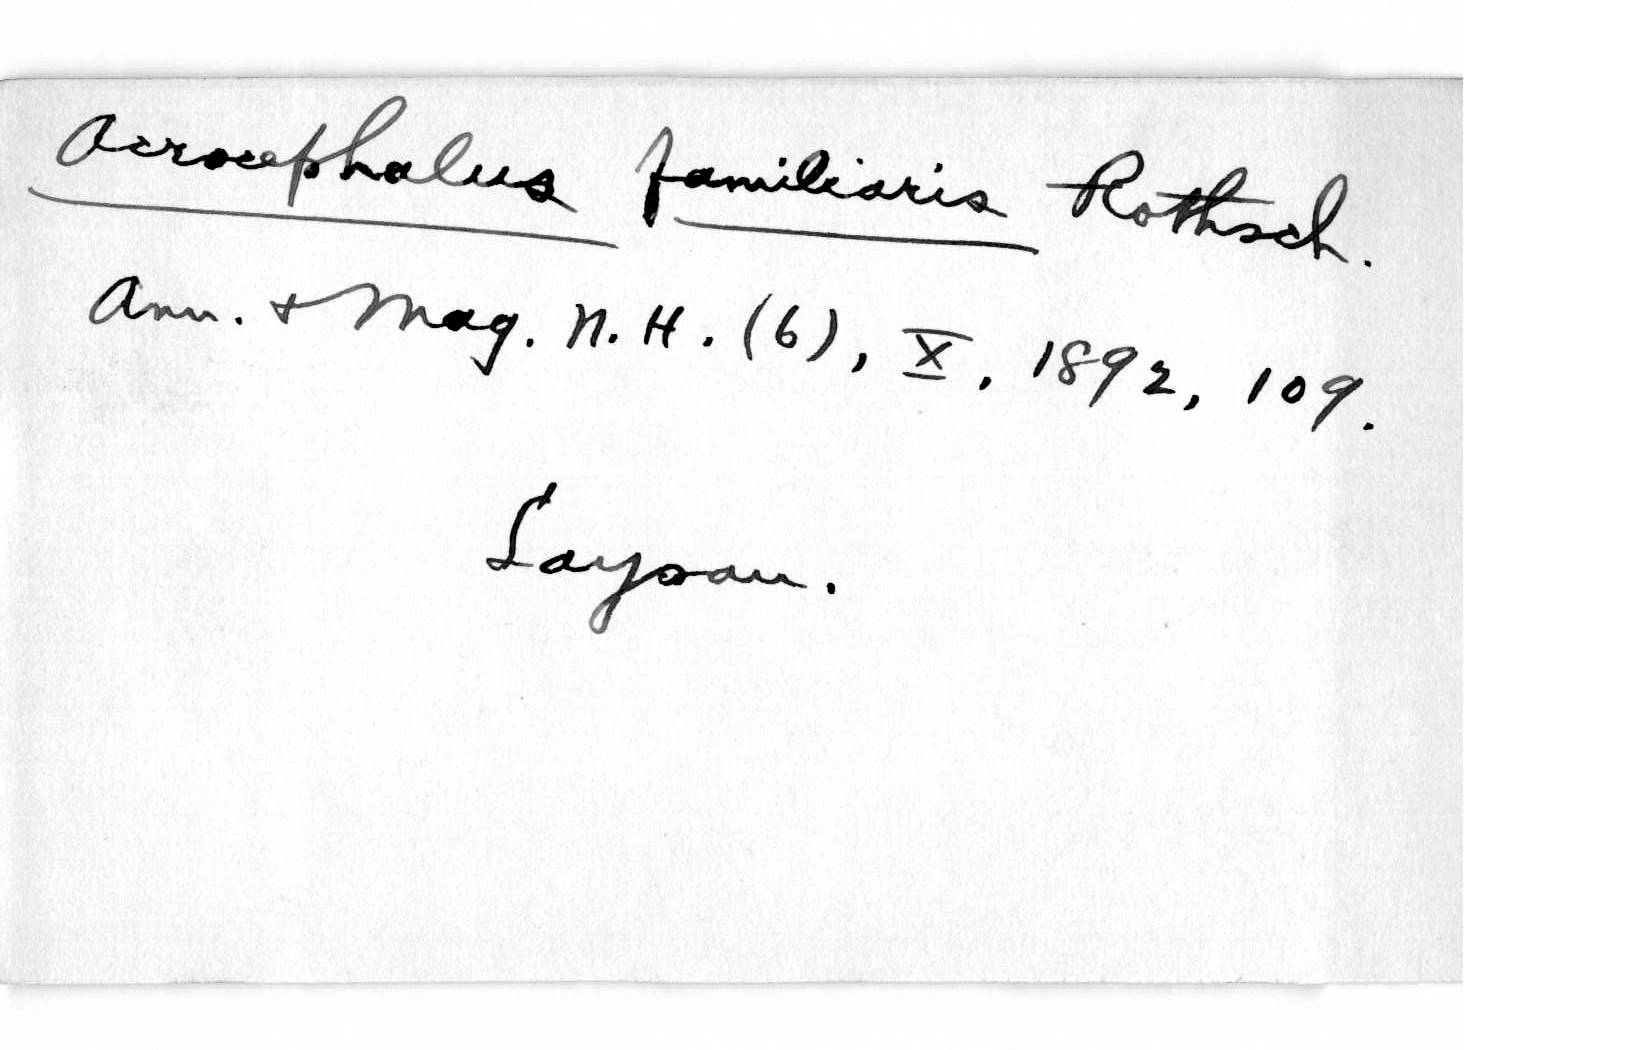 Acrocephalus familiaris Rothsch.
Ann. & Mag. N. H. (6), X, 1892, 109.
Laysan.